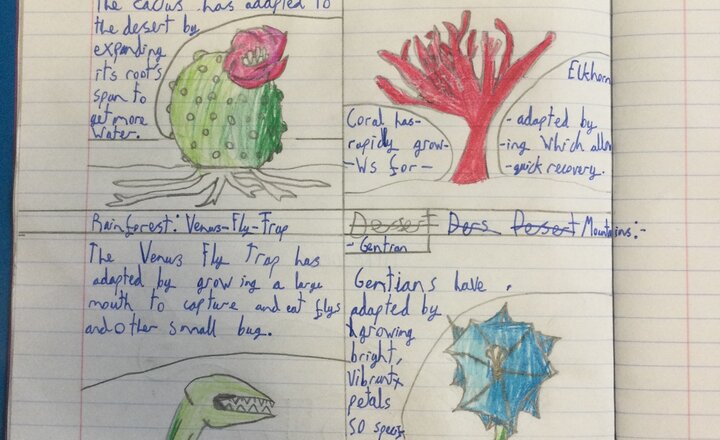 The cactus has adapted to
the desert by
expanding
its root's
span to
get more
water.
Elkhorn
Coral has- - adapted by
rapidly grow- -ing which allow
-ws for- -quick recovery.
Rainforest: Venus-Fly-Trap
The Venus Fly Trap has
adapted by growing a large
mouth to capture and eat flys
and other small bug.
Dessert Ders Desert Mountains:-
- Gentian
Gentians have
adapted by
growing
bright,
vibrant
petals
so